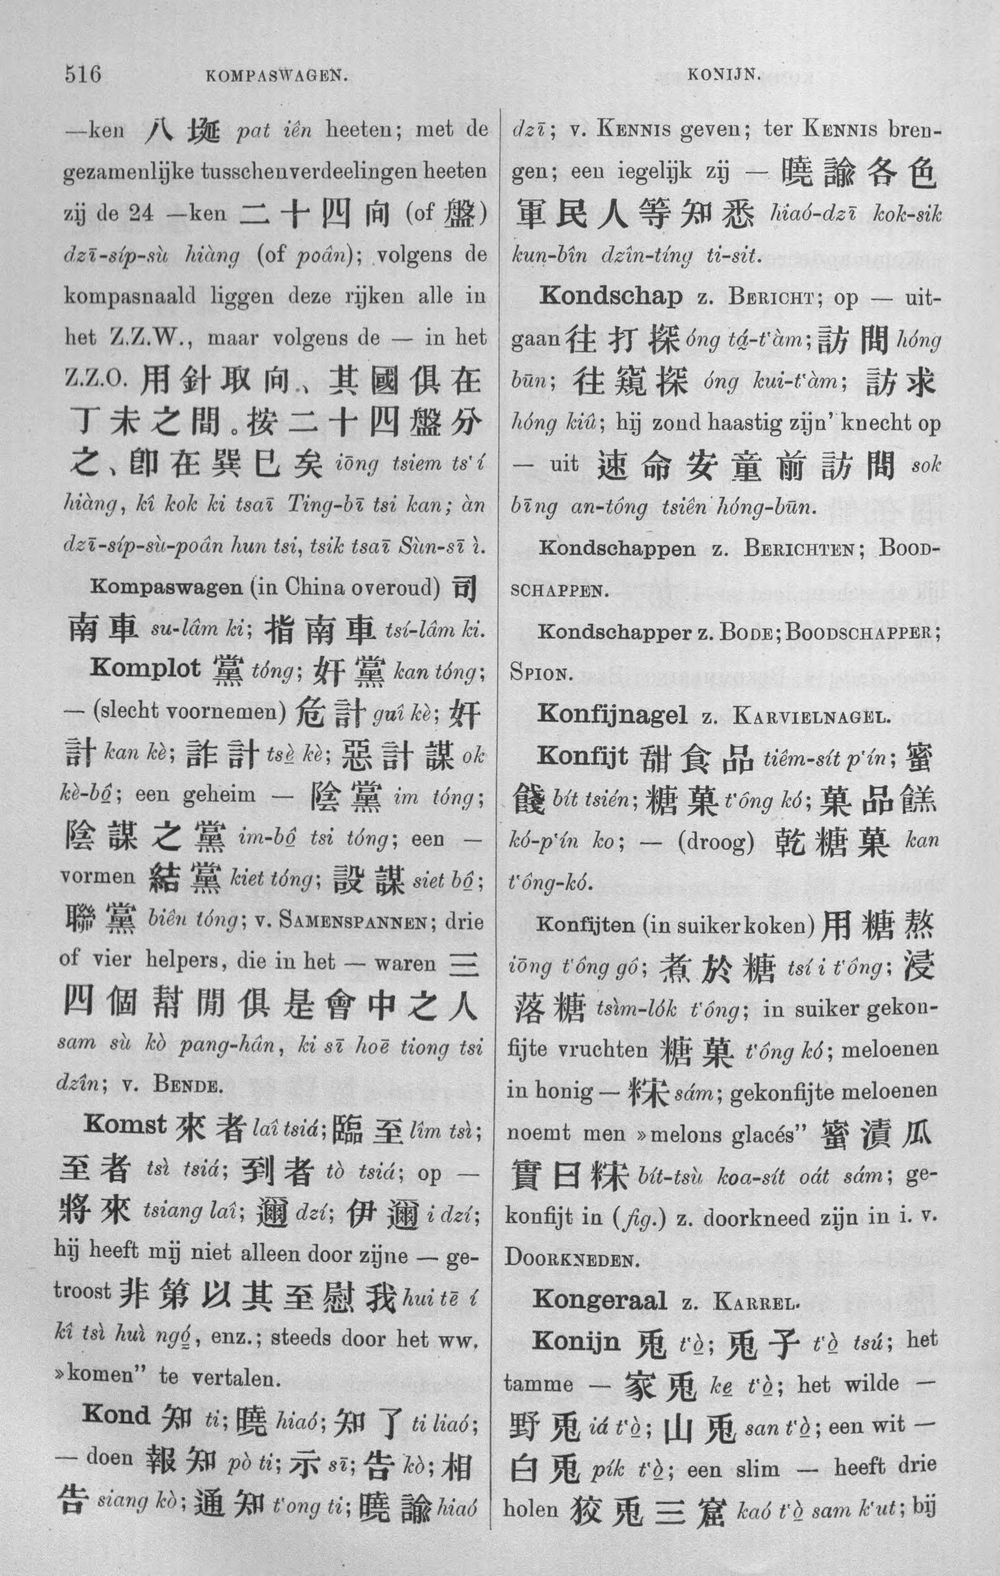 516 KOMPASWAGEN.
KONIJN.
—ken 八埏 pat iên heeten; met de
gezamenlijke tusschenverdeelingen heeten
zij de 24 —ken 二十四向 (of 盤)
dzī-síp-sù hiàng (of poân); volgens de
kompasnaald liggen deze rijken alle in
het Z.Z.W., maar volgens de — in het
Z.Z.O. 用針取向、其國俱在
丁未之間。按二十四盤分
之、卽在巽巳矣 iōng tsiem ts‘í
hiàng, kî kok ki tsaī Ting-bī tsi kan; àn
dzī-síp-sù-poân hun tsi, tsik tsaī Sùn-sī ì.
Kompaswagen (in China overoud) 司
南車 su-lâm ki; 指南車 tsí-lâm ki.
Komplot 黨 tóng; 奸黨 kan tóng;
— (slecht voornemen) 危計 guî kè; 奸
計 kan kè; 詐計 tsè̱ kè; 惡計謀 ok
kè-bô̱; een geheim — 陰黨 im tóng;
陰謀之黨 im-bô̱ tsi tóng; een —
vormen 結黨 kiet tóng; 設謀 siet bô̱;
聯黨 biên tóng; v. SAMENSPANNEN; drie
of vier helpers, die in het — waren 三
四個幫閒俱是會中之人
sam sù kò pang-hân, ki sī hoē tiong tsi
dzîn; v. BENDE.
Komst 來者 laî tsiá; 臨至 lîm tsì;
至者 tsì tsiá; 到者 tò tsiá; op —
將來 tsiang laî; 邇 dzí; 伊邇 i dzí;
hij heeft mij niet alleen door zijne — ge-
troost 非第以其至慰我 hui tē í
kî tsì huì ngó̱, enz.; steeds door het ww.
»komen” te vertalen.
Kond 知 ti; 曉 hiaó; 知了 ti liaó;
— doen 報知 pò ti; 示 sī; 告 kò; 相
告 siang kò; 通知 t‘ong ti; 曉諭 hiaó
dzī; v. KENNIS geven; ter KENNIS bren-
gen; een iegelijk zij — 曉諭各色
軍民人等知悉 hiaó-dzī kok-sik
kun-bîn dzîn-tíng ti-sit.
Kondschap z. BERICHT; op — uit-
gaan 往打探 óng tá̱-t‘àm; 訪問 hóng
būn; 往窺探 óng kui-t‘àm; 訪求
hóng kiû; hij zond haastig zijn’ knecht op
— uit 速命安童前訪問 sok
bīng an-tông tsiên hóng-būn.
Kondschappen z. BERICHTEN; BOOD-
SCHAPPEN.
Kondschapper z. BODE; BOODSCHAPPER;
SPION.
Konfijnagel z. KARVIELNAGEL.
Konfijt 甜食品 tiêm-sít p‘ín; 蜜
餞 bít tsién; 糖菓 t‘ông kó; 菓品餻
kó-p‘ín ko; — (droog) 乾糖菓 kan
t‘ông-kó.
Konfijten (in suiker koken) 用糖熬
iōng t‘ông gô; 煮於糖 tsí i t‘ông; 浸
落糖 tsìm-lók t‘ông; in suiker gekon-
fijte vruchten 糖菓 t‘ông kó; meloenen
in honig — 糂 sám; gekonfijte meloenen
noemt men »melons glacés” 蜜漬瓜
實曰糂 bít-tsù koa-sít oát sám; ge-
konfijt in (fig.) z. doorkneed zijn in i. v.
DOORKNEDEN.
Kongeraal z. KARREL.
Konijn 兎 t‘ò̱; 兎子 t‘ò̱ tsú; het
tamme — 家兎 ke̱ t‘ò̱; het wilde —
野兎 iá t‘ò̱; 山兎 san t‘ò̱; een wit —
白兎 pík t‘ò̱; een slim — heeft drie
holen 狡兎三窟 kaó t‘ò̱ sam k‘ut; bij